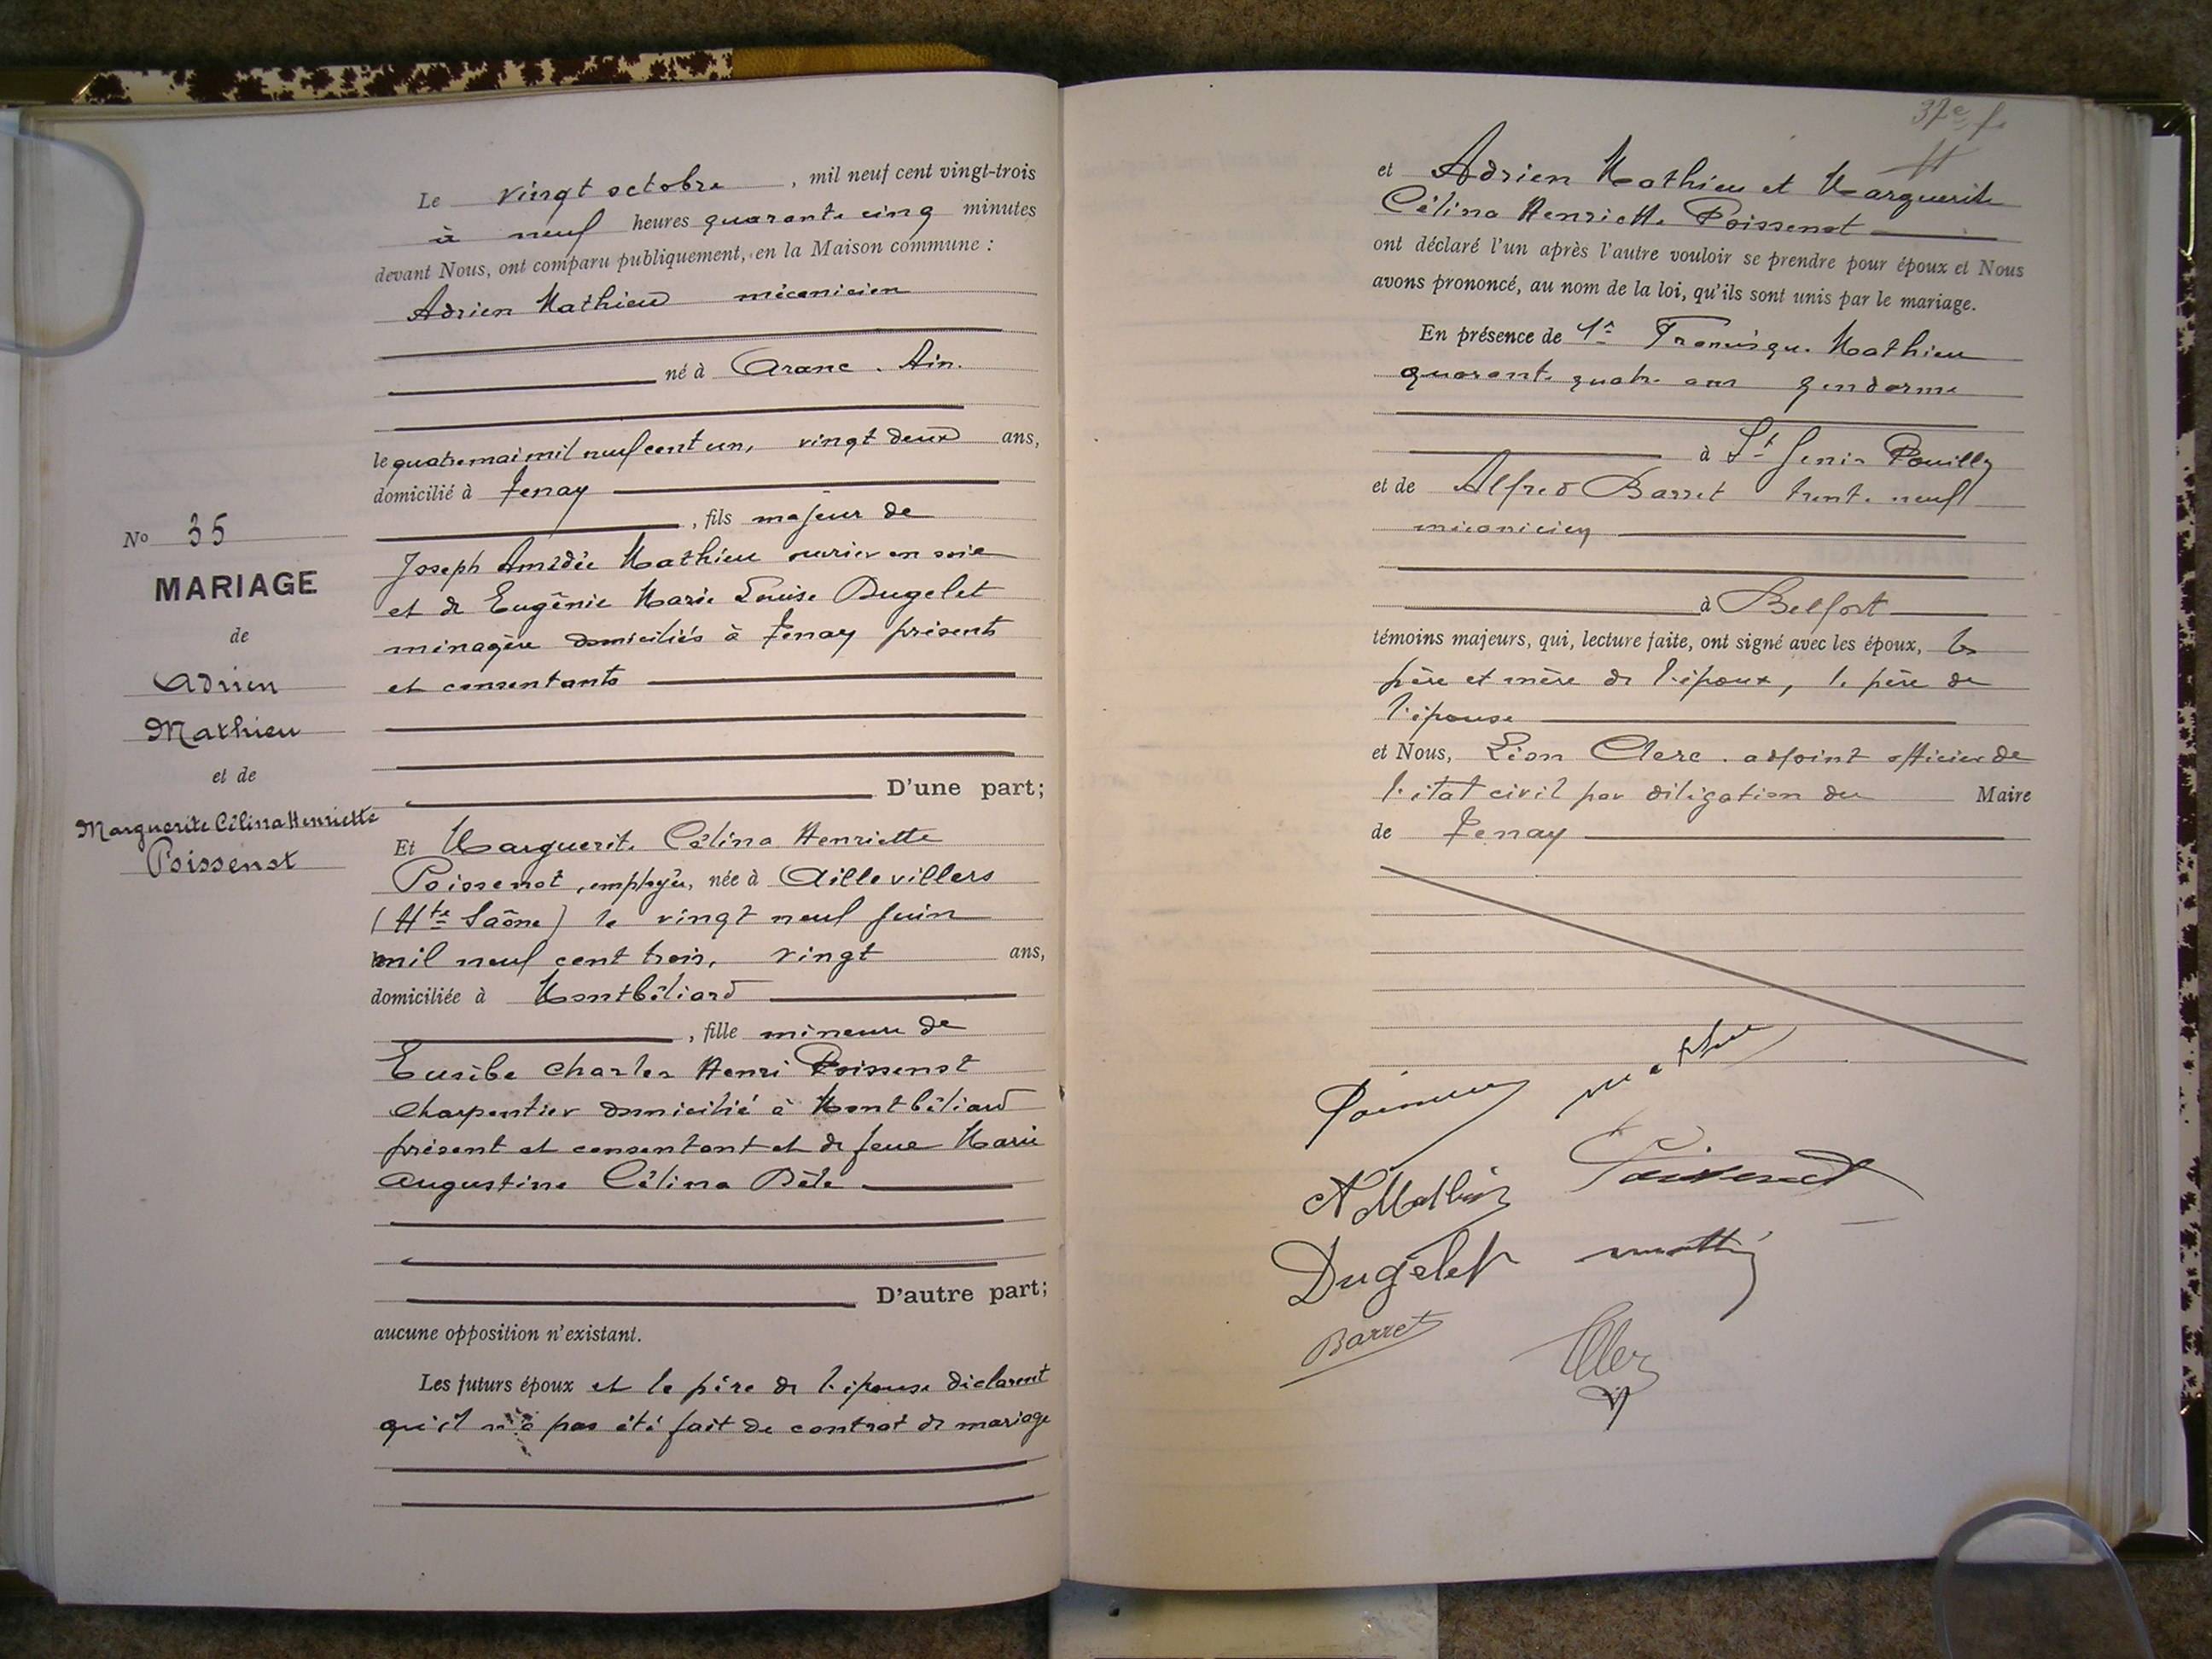 Le vingt octobre, mil neuf cent vingt-trois
à neuf heures quarante cinq minutes
devant Nous, ont comparu publiquement, en la Maison commune :
Adrien Mathieu mécanicien
né à Aranc. Ain.
le quatre mai mil neuf cent un, vingt deux ans,
domicilié à Tenay
, fils majeur de
Joseph Amédée Mathieu ouvrier en soie
et de Eugénie Marie Louise Dugelet
ménagère domiciliés à Tenay présents
et consentants
D'une part;
No 35
MARIAGE
de
Adrien
Mathieu
et de
Marguerite Célina Henriette
Poissenot
Et Marguerite Célina Henriette
Poissenot, employée, née à Aillevillers
(Hte Saône) le vingt neuf juin
mil neuf cent trois, vingt ans,
domiciliée à Montbéliard
, fille mineure de
Eusèbe Charles Henri Poissenot
charpentier domicilié à Montbéliard
présent et consentant et de feue Marie
Augustine Célina
D'autre part;
aucune opposition n'existant.
Les futurs époux et le père de l'épouse déclarent
qu'il n'a pas été fait de contrat de mariage
37e f.
et Adrien Mathieu et Marguerite
Célina Henriette Poissenot
ont déclaré l'un après l'autre vouloir se prendre pour époux et Nous
avons prononcé, au nom de la loi, qu'ils sont unis par le mariage.
En présence de 1° Francisque Mathieu
quarante quatre ans gendarme
à St Genis Pouilly
et de Alfred Barret trente neuf
mécanicien
à Belfort
témoins majeurs, qui, lecture faite, ont signé avec les époux, les
père et mère de l'époux, le père de
l'épouse
et Nous, Léon Clerc. adjoint officier de
l'état civil par délégation du Maire
de Tenay
Mathieu
A Mathieu Poissenot
Dugelet
Barret